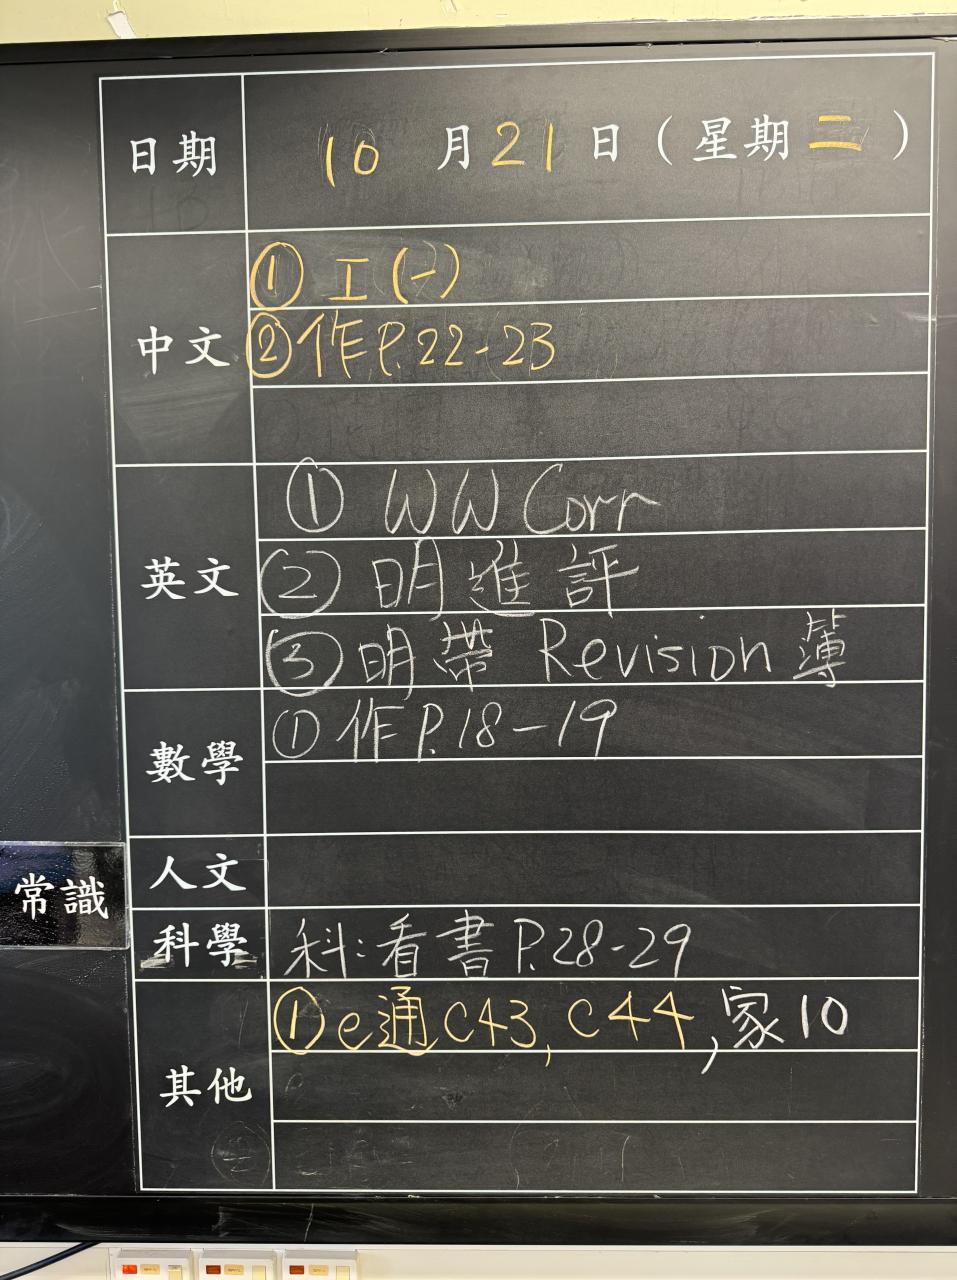 日期 10月21日(星期二)
中文
① 工(一)
② 作P.22-23
英文
① WW Corr
② 明進評
③ 明帶 Revision 簿
數學
① 作P.18-19
人文
常識
科學
科:看書P.28-29
其他
① e通C43, C44, 家10